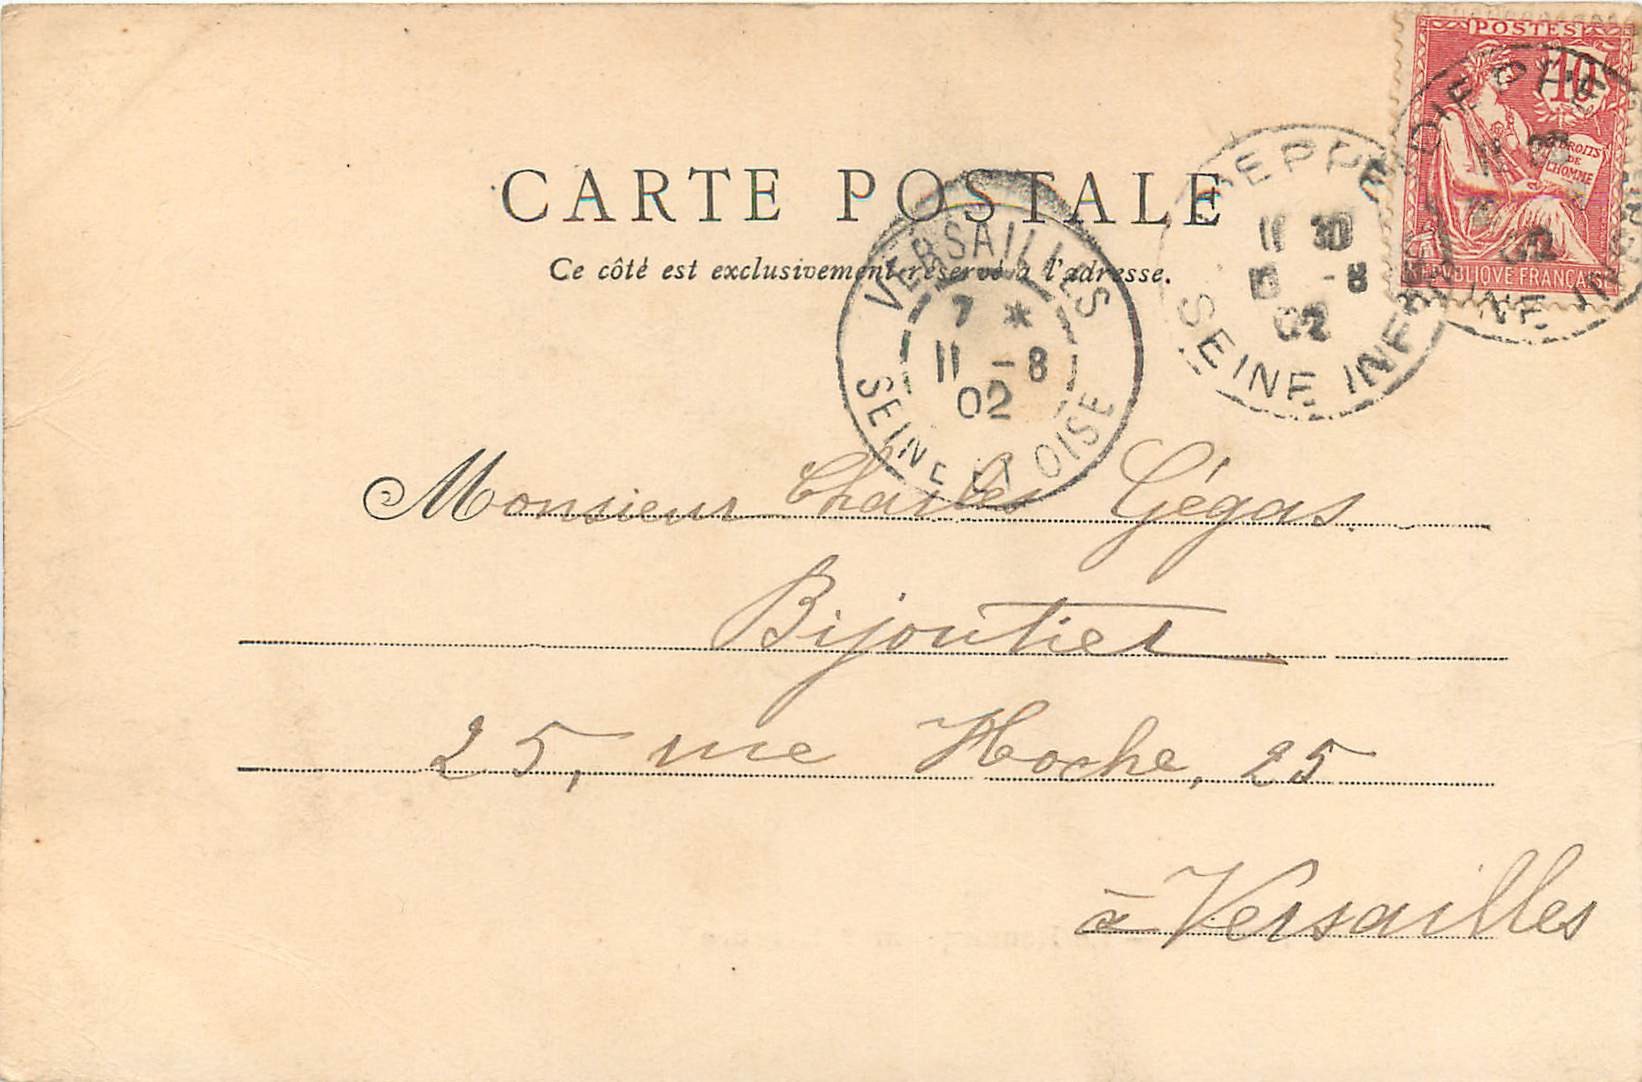 POSTES
10
DROITS
DE
L'HOMME
REPUBLIQUE FRANÇAISE
DIEPPE
02
SEINE INFRE
DIEPPE
11 30
-8
02
SEINE INFRE
CARTE POSTALE
Ce côté est exclusivement réservé à l'adresse.
VERSAILLES
7 *
11 -8
02
SEINE ET OISE
Monsieur Charles Gégas.
Bijoutier
25, rue Hoche, 25
à Versailles